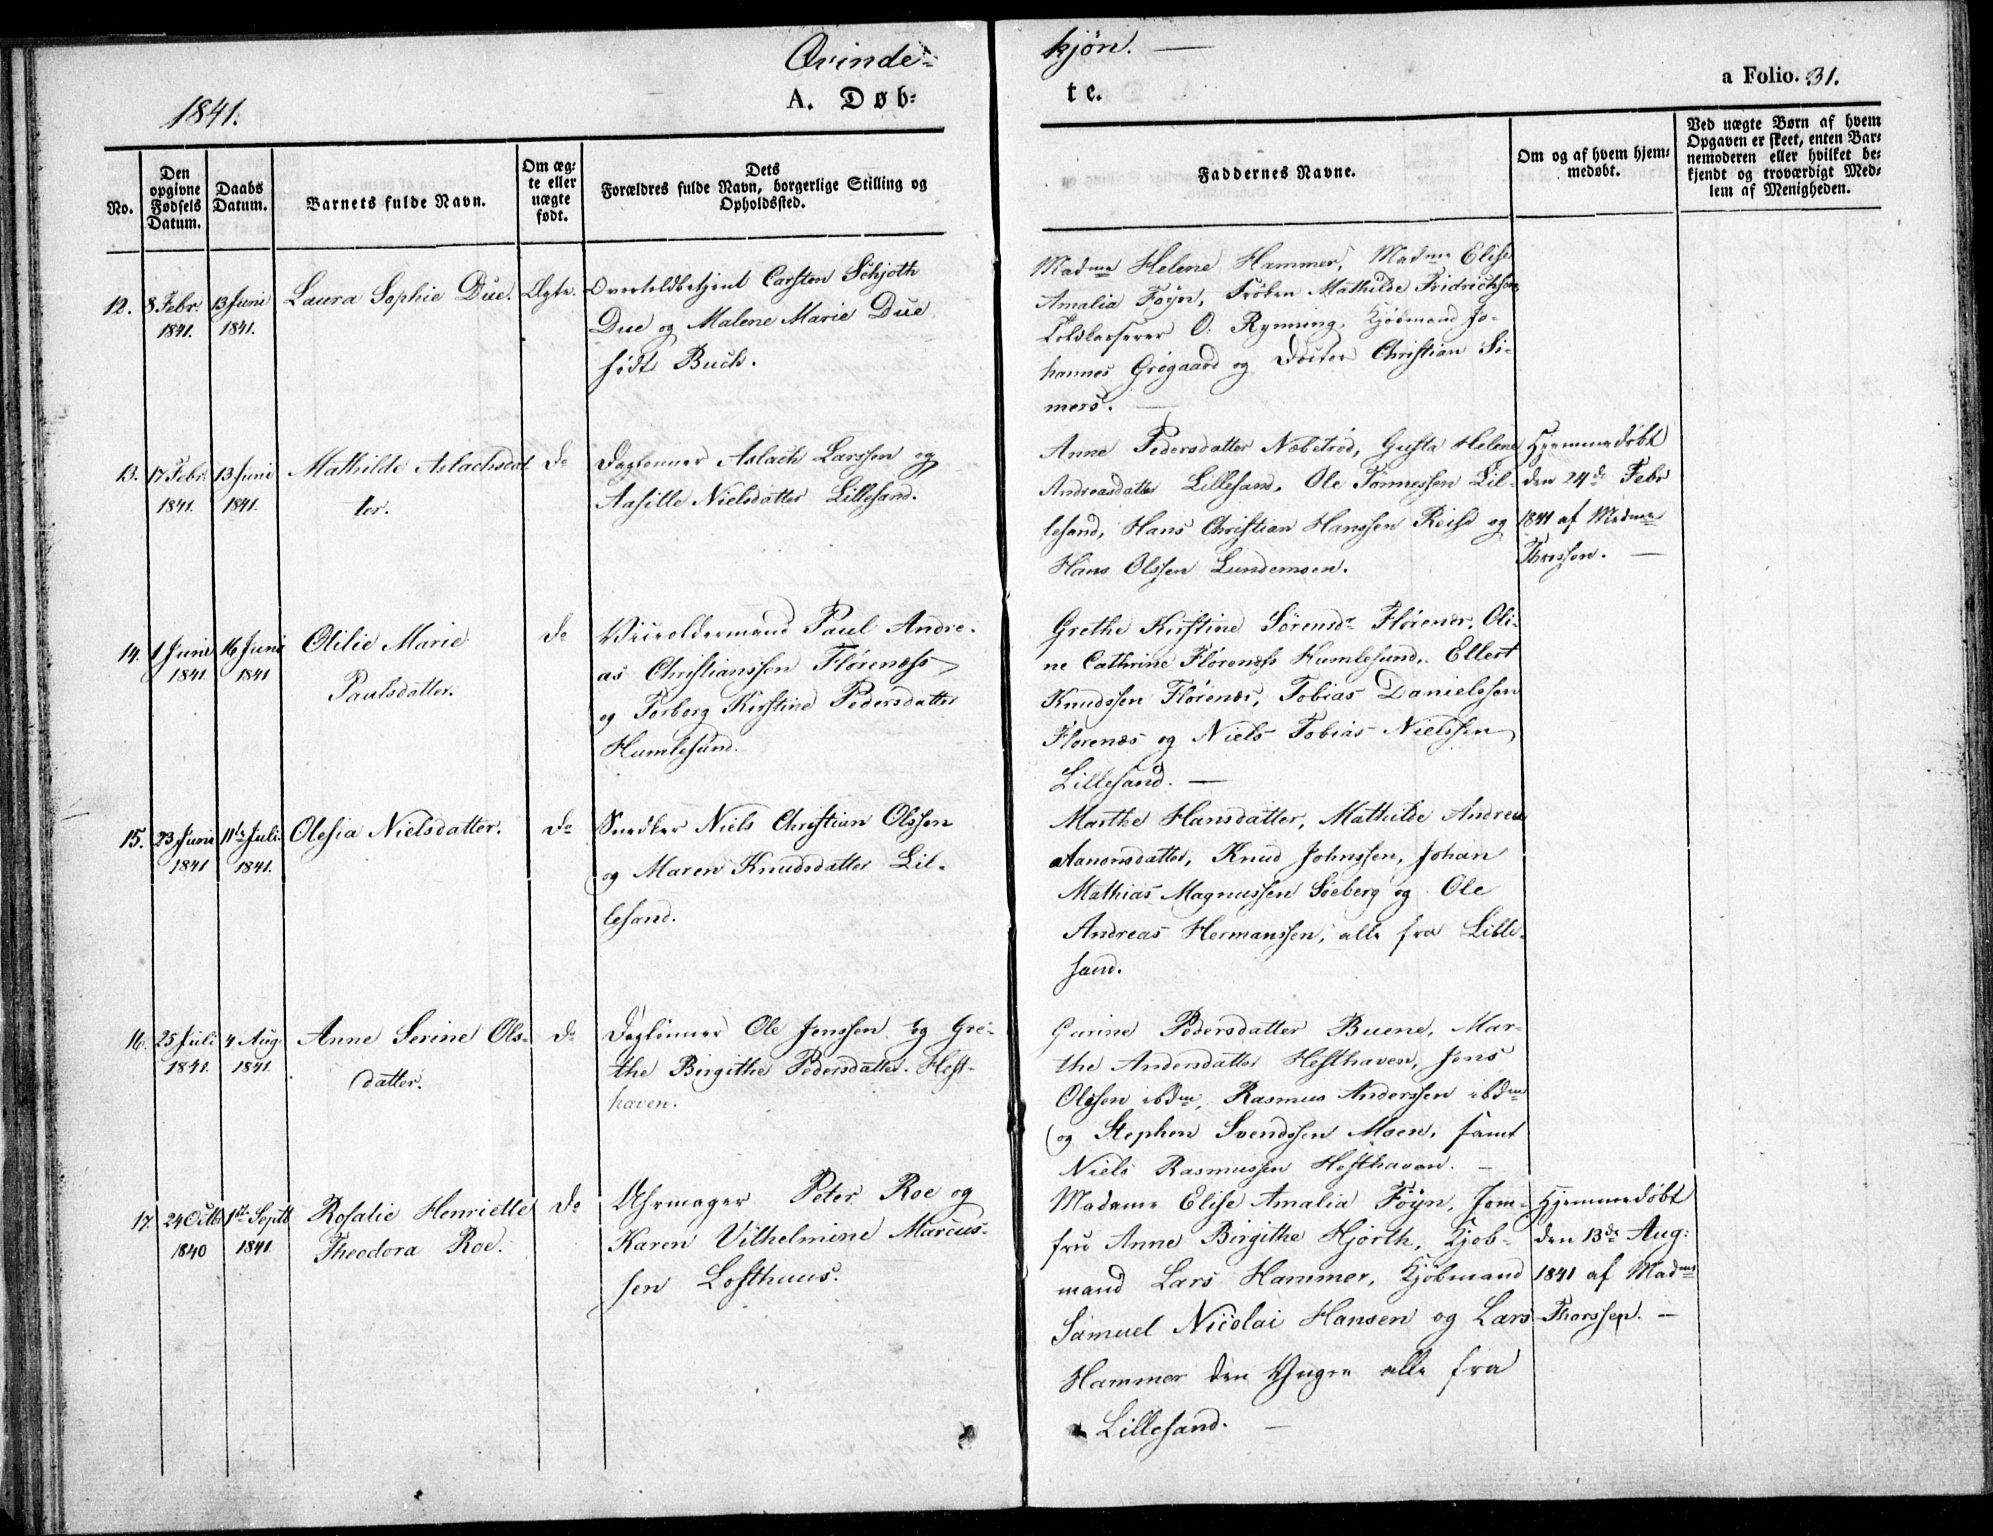 Qvinde-
kjøn. —
1841.
A. Døb-
te.
a Folio. 31.
No.
Den opgivne Fødsels Datum.
Daabs Datum.
Barnets fulde Navn.
Om ægte eller uægte født.
Dets
Forældres fulde Navn, borgerlige Stilling og
Opholdssted.
Faddernes Navne.
Om og af hvem hjem-
medøbt.
Ved uægte Børn af hvem
Opgaven er skeet, enten Bar-
nemoderen eller hvilket be-
kjendt og troværdigt Med-
lem af Menigheden.
12. 8 Febr. 1841. 13 Juni 1841. Laura Sophie Due. Ægte.
Overtoldbetjent Carsten Schjoth
Due og Malene Marie Due
født Buch.
Madme Helene Hammer, Madme Elise
Amalia Föyn, Frøken Mathilde Fridrichsen
Toldkasserer O. Rynning, Kjøbmand Jo-
hannes Grøgaard og Doctor Christian Si-
mers. —
13. 17 Febr. 1841. 13 Juni 1841. Mathilde Aslachsdat
ter.
do
Daglønner Aslach Larssen og
Aasille Nielsdatter Lillesand.
Anne Pedersdatter Næbetrød, Gusta Helene
Andreasdatter Lillesand, Ole Tønnessen Lil-
lesand, Hans Christian Hanssen Reise og
Hans Olssen Lundemoen.
Hjemmedøbt
den 24de Febr
1841 af Madme
Thorssen. —
14. 1 Juni 1841 16 Juni 1841 Otilie Marie
Paulsdatter.
do
Paul Andre-
as Christianssen Flørenæss
og Torborg Kirstine Pedersdatter
Humlesund.
Grethe Kirstine Sørensdr Flørenæs, Oli-
ne Cathrine Flørenæss Humlesund, Ellert
Knudssen Flørenæs, Tobias Danielssen
Flørenæs og Niels Tobias Nielssen
Lillesand. —
15. 23 Juni 1841 11te Juli 1841. Olesia Nielsdatter.
do
Snedker Niels Christian Olssen
og Maren Knudsdatter Lil-
lesand.
Marthe Hansdatter, Mathilde Andrea
Aanonsdatter, Knud Johnssen, Johan
Mathias Magnussen Søeberg og Ole
Andreas Hermanssen, alle fra Lille-
sand.
16. 25 Juli 1841. 4 Aug. 1841. Anne Serine Ols-
datter.
do
Daglønner Ole Jenssen og Gre-
the Birgithe Pedersdatter Hest-
haven.
Garine Pedersdatter Buene, Mar-
the Andersdatter Hesthaven, Jens
Olssen ibdm, Rasmus Anderssen ibdm
og Stephen Svendssen Moen, samt
Niels Rasmussen Hesthaven. —
17. 24 Octb 1840 1ste Septb 1841. Rosalie Henriette
Theodora Roe.
do
Uhrmager Peter Roe og
Karen Vilhelmine Marcus-
sen Lofthuus.
Madame Elise Amalia Föyn, Jom-
fru Anne Birgithe Hjorth, Kjøb-
mand Lars Hammer, Kjøbmand
Samuel Nicolai Hansen og Lars
Hammer den Yngre alle fra
Lillesand. —
Hjemmedøbt
den 13de Aug:
1841 af Madme
Thorssen. —